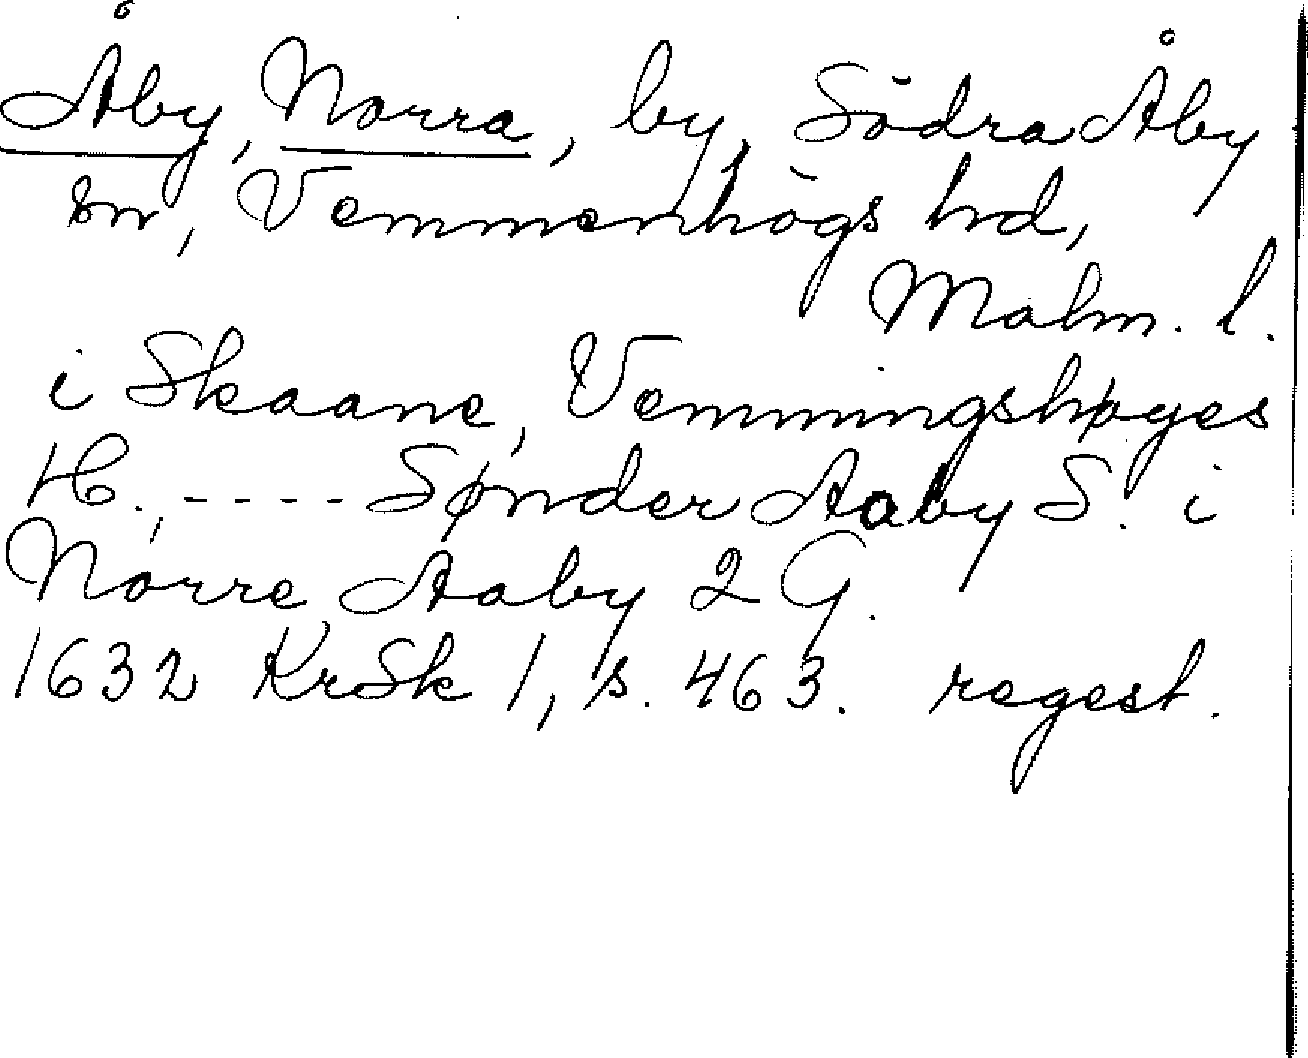 Åby, Norra, by, Södra Åby
sn, Vemmenhögs hd,
Malm. l.
i Skaane, Vemmingshøyes
H., ---- Sønder Aaby S. i
Norre Aaby 2 G.
1632 KrSk 1, s. 463. regest.